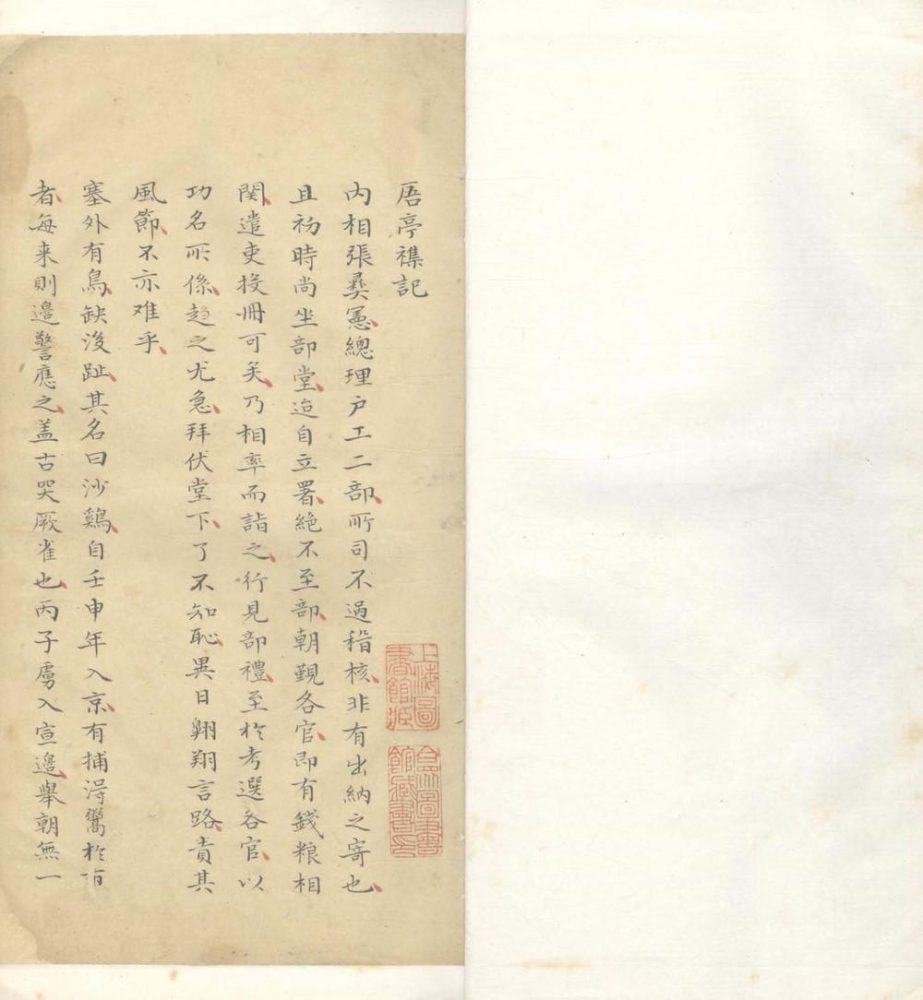 𢈪亭襍記
内相張彝憲總理户工二部所司不過稽核非有出納之寄也
且初時尚坐部堂迨自立署絶不至部朝覲各官即有錢粮相
関遣吏投冊可矣乃相率而詣之行見部禮至扵考選各官以
功名所係趋之尤急拜伏堂下了不知恥異日翱翔言路責其
風節不亦难乎
塞外有鳥缺後趾其名曰沙鷄自壬申年入京有捕淂鬻扵市
者每来則邉警應之盖古突厥雀也丙子虜入宣邉舉朝無一
上海圖書館藏